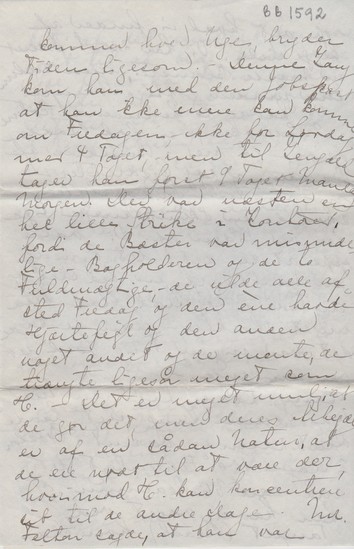 BB 1592
kommer hver Uge, bryder
Tiden ligesom. - Denne Gang
kom han med den Jobspost
at han ikke mere kan komme
om Fredagen - ikke før Lørdag
med 4 Toget, men til Gengæld
tager han først 9 Toget Mandag
Morgen. Der var næsten en
hel lille Strike i Kontoret,
fordi de Bæster var misunde-
lige - Bogholderen og de to
Fuldmægtige - de vilde alle af-
sted Fredag og den ene havde
Hjertefejl og den anden
noget andet og de mente, de
trængte ligesaa meget som
H. - Det er meget muligt at
de gør det, men deres Arbejde
er af en saadan Natur, at
de er nødt til at være der,
hvorimod H. kan koncentrere
sit til de andre Dage. Mr.
Felton sagde, at han var